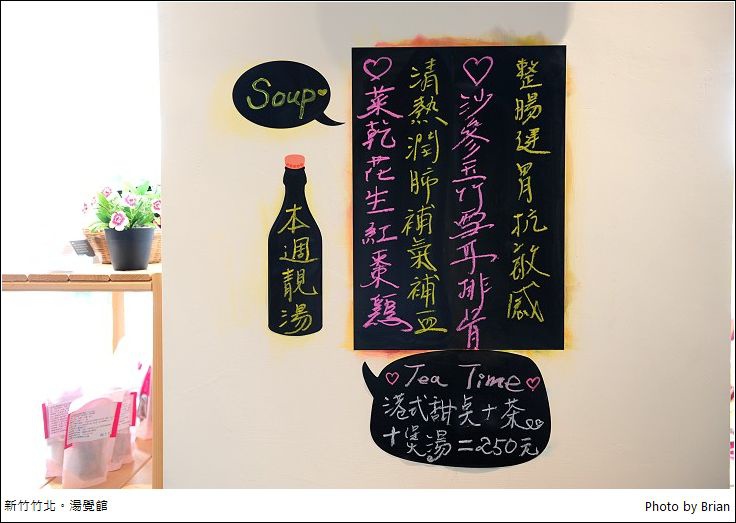 Soup
本週靚湯
整腸健胃抗敏感
♡沙參玉竹雪耳排骨
清熱潤肺補氣補血
♡菜乾花生紅棗鷄
♡Tea Time♡
港式甜點+茶
+煲湯=250元
新竹竹北。湯覺館
Photo by Brian